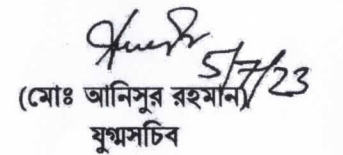 5/7/23
(মোঃ আনিসুর রহমান)
যুগ্মসচিব